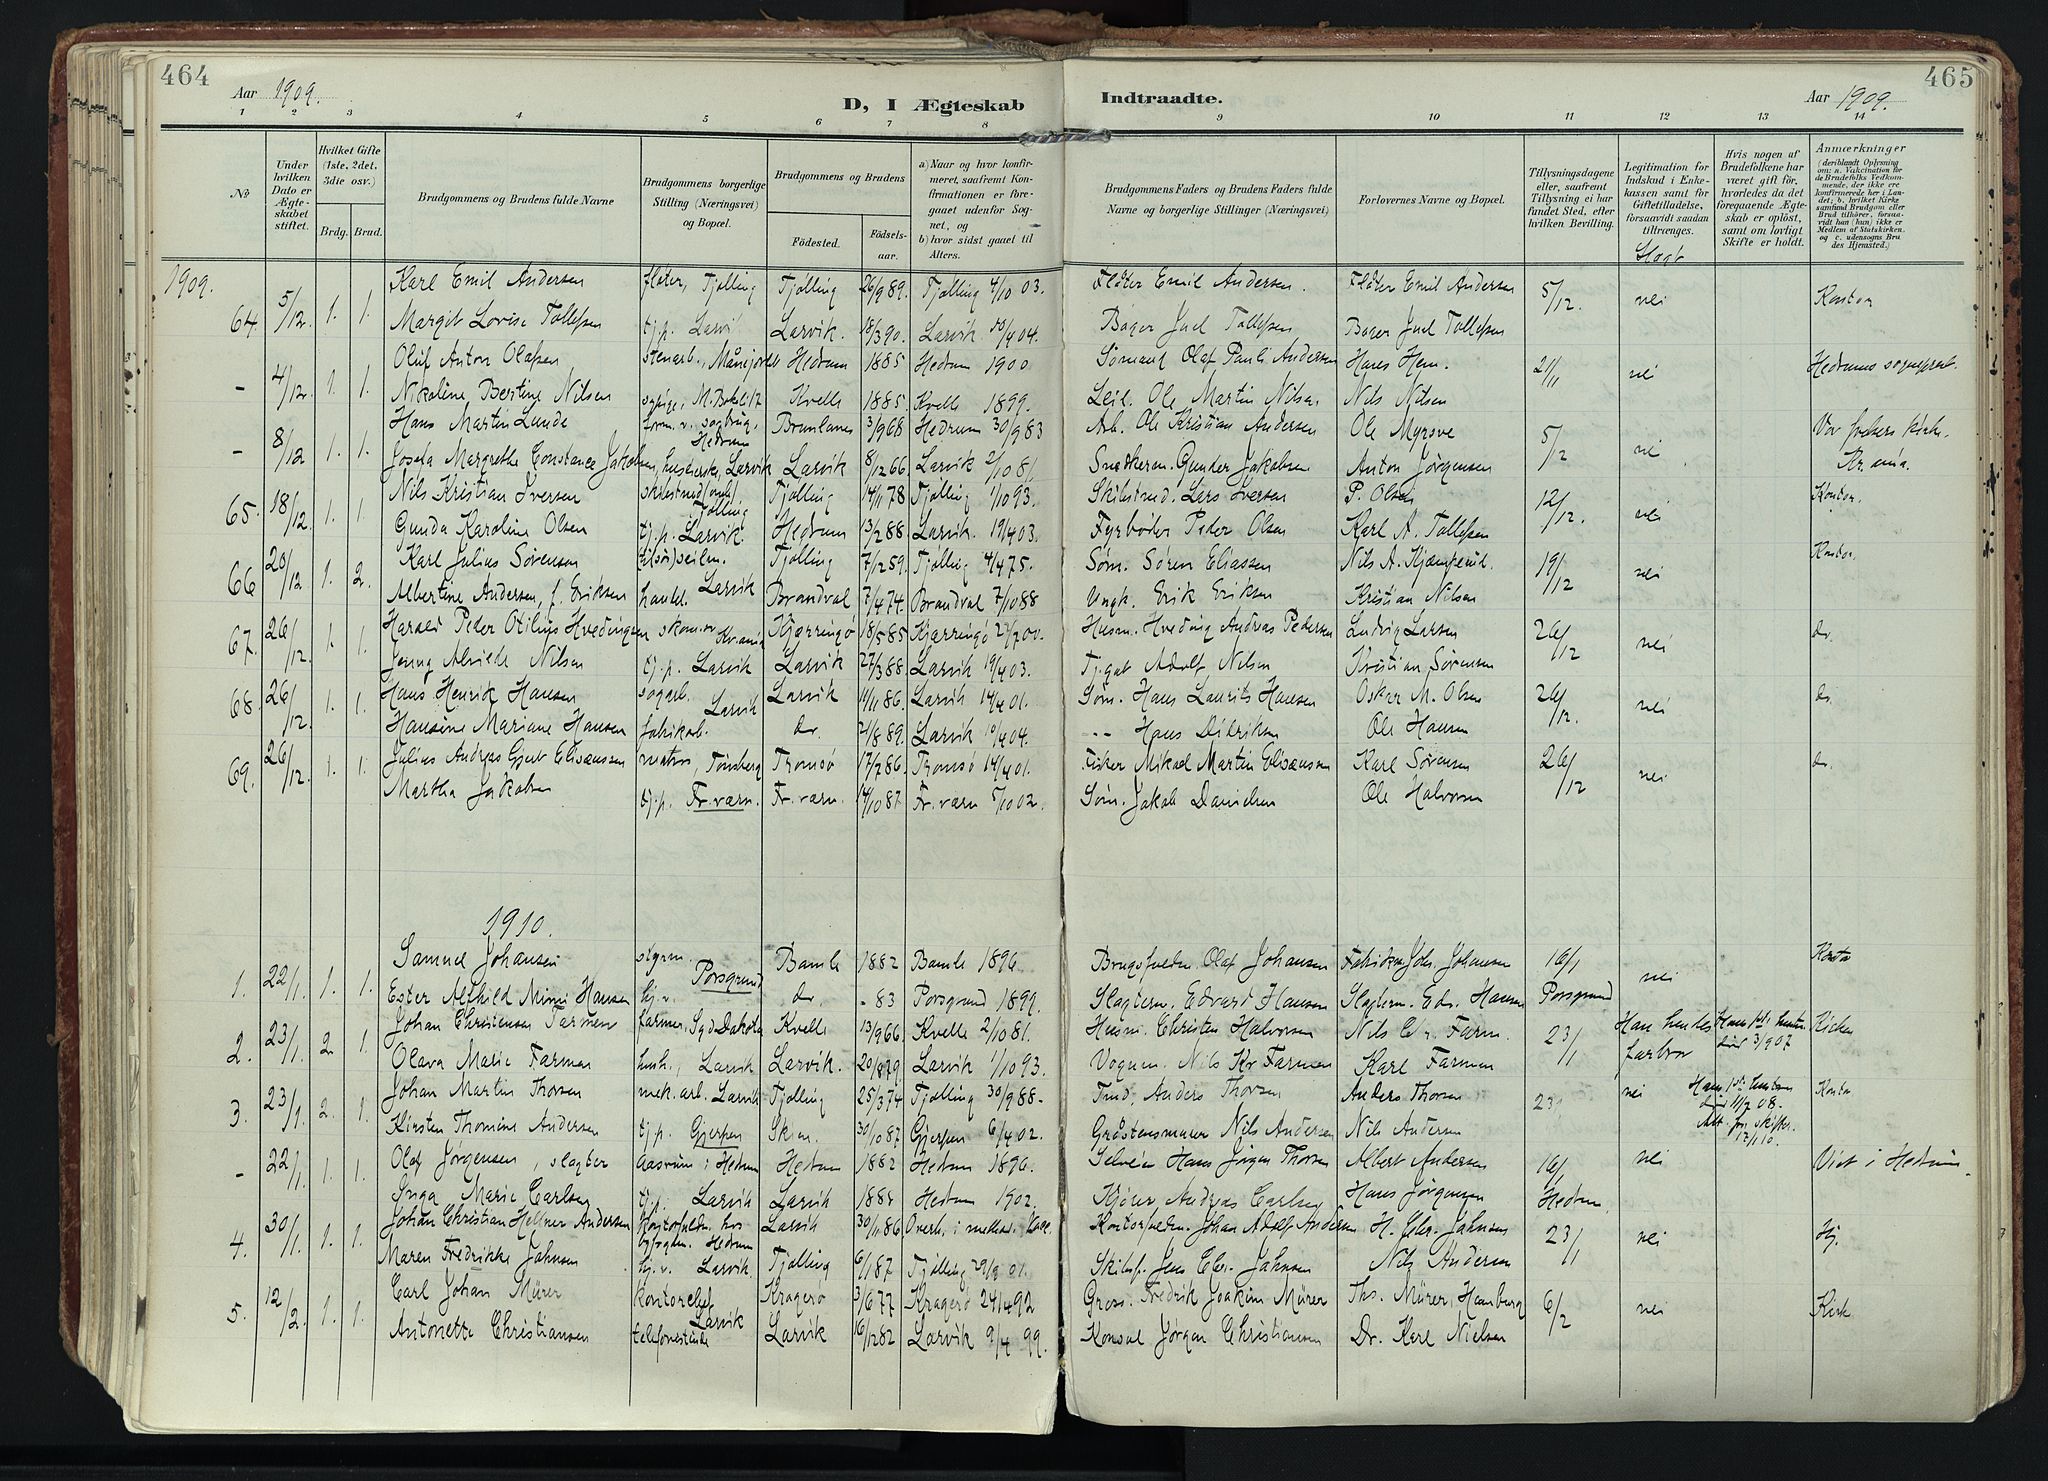 464
Aar 1909.
D, I Ægteskab
1 2 3 4 5 6 7 8
№
Under hvilken Dato er Ægteskabet stiftet.
Hvilket Gifte (1ste, 2det, 3die osv.)
Brdg. Brud.
Brudgommens og Brudens fulde Navne
Brudgommens borgerlige Stilling (Næringsvei) og Bopæl.
Brudgommens og Brudens
Fødested.
Fødselsaar.
a) Naar og hvor konfirmeret, saafremt Konfirmationen er foregaaet udenfor Sognet, og
b) hvor sidst gaaet til Alters.
1909.
64. 5/12. 1. 1. Karl Emil Andersen fløter, Tjølling Tjølling 26/9 89. Tjølling 4/10 03.
Margit Lovise Tollefsen tj.p. Larvik Larvik. 18/3 90. Larvik 10/4 04.
- 4/12. 1. 1. Oluf Anton Olafsen stenarb., Hedrum 1885 Hedrum 1900
Nikoline Bertine Nilsen Kvelle 1885. Kvelle 1899.
- 8/12 1. 1. Hans Martin Lunde form. v. sagbrug, Hedrum Brunlanes 3/9 68 Hedrum 30/9 83
Josefa Margrethe Constance Jakobsen, Larvik Larvik 8/12 66. Larvik 2/10 81.
65. 18/12. 1. 1. Nils Kristian Iversen Tjølling Tjølling 14/1 78 Tjølling 1/10 93.
Gunda Karoline Olsen tj.p. Larvik. Hedrum 13/2 88 Larvik. 19/4 03.
66 20/12 1. 2. Karl Julius Sørensen Tjølling 7/2 59. Tjølling 4/4 75.
Albertine Andersen, f. Eriksen handl. Larvik Brandval 7/4 74. Brandval 7/10 88
67. 26/12. 1. 1. Harald Peder Otilius Hvedingsen skom.sv. Kr.ania Kjærringø 18/5 85 Kjærringø 27/7 00.
Jenny Alvilde Nilsen tj.p. Larvik Larvik 27/3 88. Larvik 19/4 03.
68. 26/12. 1. 1. Hans Henrik Hansen sagarb. Larvik Larvik 11/11 86. Larvik 14/4 01.
Hansine Mariane Hansen fabrikarb. do. 21/8 89. Larvik 10/4 04.
69. 26/12. 1. 1. Julius Andreas Gjert Elisæussen matros, Tønsberg Tromsø 17/7 86. Tromsø 14/4 01.
Martha Jakobsen tj.p. Fr.værn. Fr.værn. 14/10 87. Fr.værn 5/10 02.
1910.
1. 22/1. 1. 1. Samuel Johansen styrm. Porsgrund Bamle 1882 Bamle 1896
Ester Alfhild Mimi Hansen hj.v. do - 83 Porsgrund 1899.
2. 23/1. 2. 1. Johan Christensen Farmen farmer, Syd Dakota Kvelle 13/9 66. Kvelle 2/10 81.
Olava Marie Farmen hush., Larvik Larvik. 20/8 79 Larvik 1/10 93.
3. 23/1. 2. 1. Johan Martin Thorsen mek.arb. Larvik Tjølling 25/3 74 Tjølling 30/9 88-
Kirsten Thomine Andersen tj.p. Gjerpen Skien. 30/10 87 Gjerpen 6/4 02.
- 22/1. 1. 1. Olaf Jørgensen, slagter Aasrum i Hedrum Hedrum 1882 Hedrum 1896.
Inga Marie Carlsen tj.p. Larvik Larvik 1884 Hedrum 1902.
4. 30/1. 1. 1. Johan Christian Hellner Andersen Hedrum Larvik 30/11 86
Maren Fredrikke Jahnsen hj.v. Larvik. Tjølling 6/1 87 Tjølling 29/9 01.
5. 12/2. 1. 1. Carl Johan Mürer kontorchef Larvik Kragerø 3/6 77 Kragerø 24/4 92
Antonette Christiansen Larvik 16/12 82 Larvik 9/4 99.
465
Indtraadte.
Aar 1909.
9 10 11 12 13 14
Brudgommens Faders og Brudens Faders fulde Navne og borgerlige Stillinger (Næringsvei)
Forlovernes Navne og Bopæl.
Tillysningsdagene eller, saafremt Tillysning ei har fundet Sted, efter hvilken Bevilling.
Legitimation for Indskud i Enkekassen samt for Giftetilladelse, forsaavidt saadan tiltrænges.
Hvis nogen af Brudefolkene har været gift før, hvorledes da det foregaaende Ægteskab er opløst, samt om lovligt Skifte er holdt.
Anmærkninger
(deriblandt Oplysning om: a. Vakcination for de Brudefolks Vedkommende, der ikke ere konfirmerede her i Landet; b. hvilket Kirkesamfund Brudgom eller Brud tilhører, forsaavidt han (hun) ikke er Medlem af Statskirken, og c. udensogns Brudes Hjemsted.)
Fløter Emil Andersen. Fløter Emil Andersen 5/12. nei Kontor
Bager Juel Tollefsen Bager Juel Tollefsen
Sømand Olaf Pauli Andersen Hans Hem. 21/11 nei Hedrums sogneprest.
Leil. Ole Martin Nilsen Nils Nilsen
Arb. Ole Kristian Andersen Ole Myrsve 5/12 nei Vor frelsers kirke
Snedkerm. Gunder Jakobsen Anton Jørgensen Kr.ania.
Skibstmd. Lars Iversen P. Olsen 12/12. nei Kontor.
Fyrbøder Peder Olsen Karl A. Tollefsen
Søm. Søren Eliassen Nils A. Kjæmperud. 19/12 nei Kontor
Ungk. Erik Eriksen Kristian Nilsen
Husm. Hveding Andreas Pedersen Ludvig Larsen 26/12 nei do.
Adolf Nilsen Kristian Sørensen
Søm. Hans Laurits Hansen Oskar M. Olsen 26/12. nei do.
-- Hans Didriksen Ole Hansen
Fisker Mikael Martin Elisæussen Karl Sørensen 26/12 nei do.
Søm. Jakob Danielsen Ole Halvorsen
Olaf Johansen Johs. Johansen 16/1 nei Kontor
Slagterm. Edvard Hansen Slagterm. Edv. Hansen Porsgrund
Husm. Christen Halvorsen Nils Chr. Farm. 23/1 Han hendes farbror Hans 1ste hustru død 3/9 07 Kirken
Vognm. Nils Kr Farmen Karl Farmen
Tmd. Anders Thorsen Anders Thorsen 23/1 nei Hans 1ste hustru død 11/7 08. Att. fra skifter. 12/1 10. Kontor
Gråstensmurer Nils Andersen Nils Andersen
Selveier Hans Jørgen Thorsen Albert Andersen 16/1 nei Viet i Hedrum.
Andreas Carlsen Hans Jørgensen Hedrum.
Johan Adolf Andersen H. Chr. Jahnsen 23/1 nei Hj.
Skibsf. Jens Chr. Jahnsen Nils Andersen
Gross. Fredrik Joakim Mürer Ths. Mürer, Hamburg 6/2 nei Kirk
Konsul Jørgen Christiansen Dr. Karl Nielsen